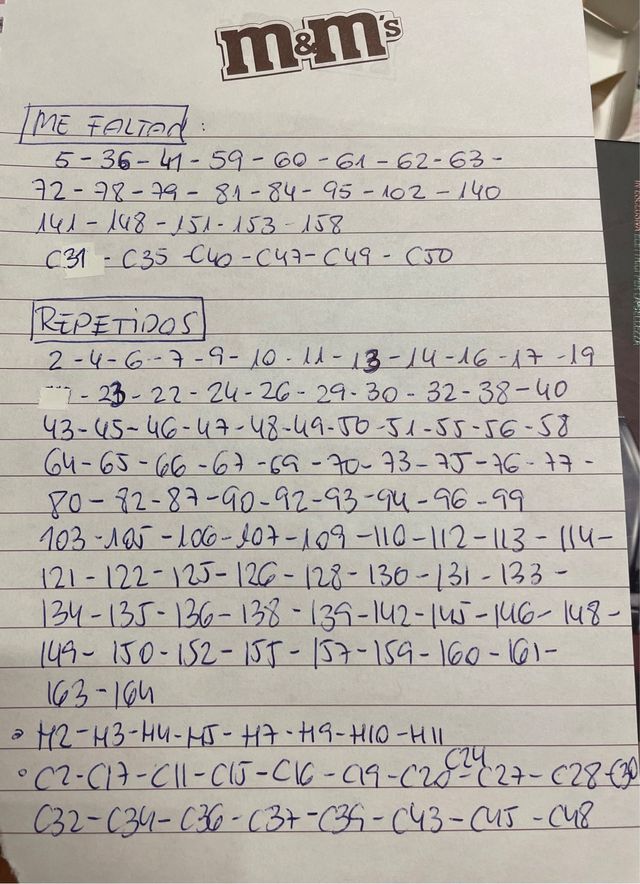 m&m's
ME FALTAN :
5 - 36 - 41 - 59 - 60 - 61 - 62 - 63 -
72 - 78 - 79 - 81 - 84 - 95 - 102 - 140
141 - 148 - 151 - 153 - 158
C31 - C35 - C40 - C47 - C49 - C50
REPETIDOS
2 - 4 - 6 - 7 - 9 - 10 - 11 - 13 - 14 - 16 - 17 - 19
- 23 - 22 - 24 - 26 - 29 - 30 - 32 - 38 - 40
43 - 45 - 46 - 47 - 48 - 49 - 50 - 51 - 55 - 56 - 58
64 - 65 - 66 - 67 - 69 - 70 - 73 - 75 - 76 - 77 -
80 - 82 - 87 - 90 - 92 - 93 - 94 - 96 - 99
103 - 105 - 106 - 107 - 109 - 110 - 112 - 113 - 114 -
121 - 122 - 125 - 126 - 128 - 130 - 131 - 133 -
134 - 135 - 136 - 138 - 139 - 142 - 145 - 146 - 148 -
149 - 150 - 152 - 155 - 157 - 159 - 160 - 161 -
163 - 164
• H2 - H3 - H4 - H5 - H7 - H9 - H10 - H11
• C2 - C17 - C11 - C15 - C16 - C19 - C20 - C24 - C27 - C28 - C30
C32 - C34 - C36 - C37 - C39 - C43 - C45 - C48